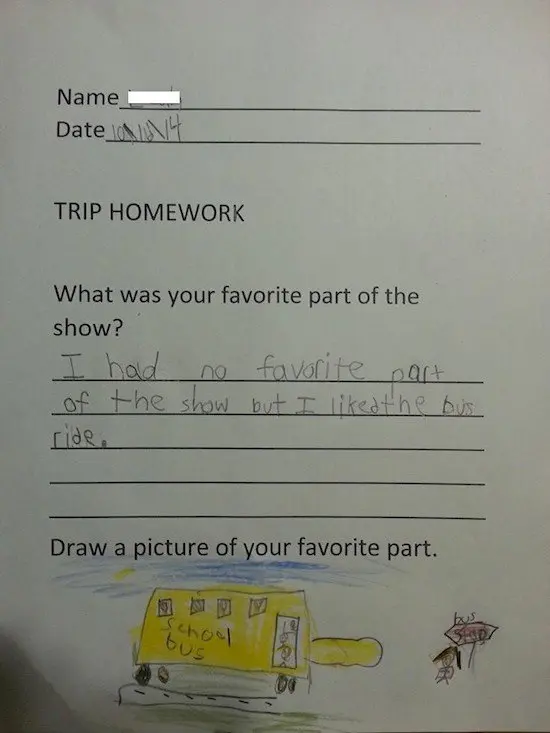 Name
Date 10/10/14
TRIP HOMEWORK
What was your favorite part of the
show?
I had no favorite part
of the show but I liked the bus
ride.
Draw a picture of your favorite part.
school
bus
bus
stop